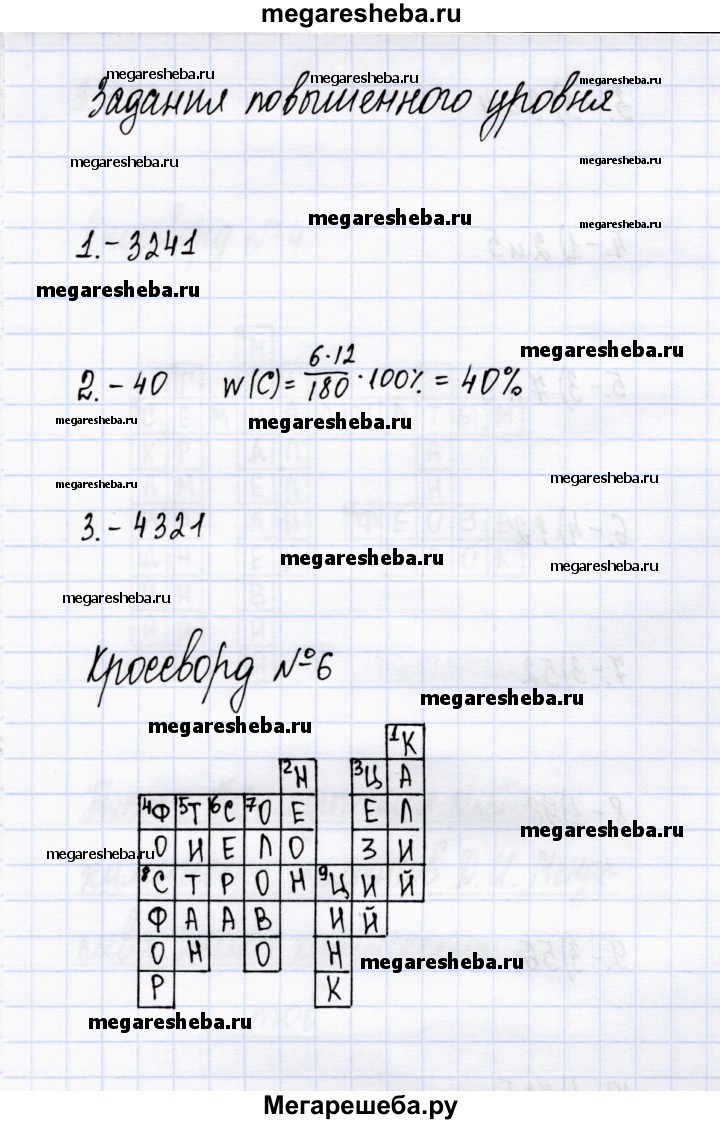 megaresheba.ru
megaresheba.ru megaresheba.ru megaresheba.ru
Задания повышенного уровня
megaresheba.ru megaresheba.ru
megaresheba.ru megaresheba.ru
1. – 3241
megaresheba.ru
megaresheba.ru
2. – 40 W(C) = 6·12/180 · 100% = 40%
megaresheba.ru megaresheba.ru
megaresheba.ru megaresheba.ru
3. – 4321
megaresheba.ru megaresheba.ru
megaresheba.ru
Кроссворд №6
megaresheba.ru
megaresheba.ru
1К
2Н 3Ц А
4Ф 5Т 6С 7О Е Е Л
megaresheba.ru
О И Е Л О З И
megaresheba.ru
8С Т Р О Н 9Ц И Й
Ф А А В И Й
О Н О Н
megaresheba.ru
Р К
megaresheba.ru
Мегарешеба.ру